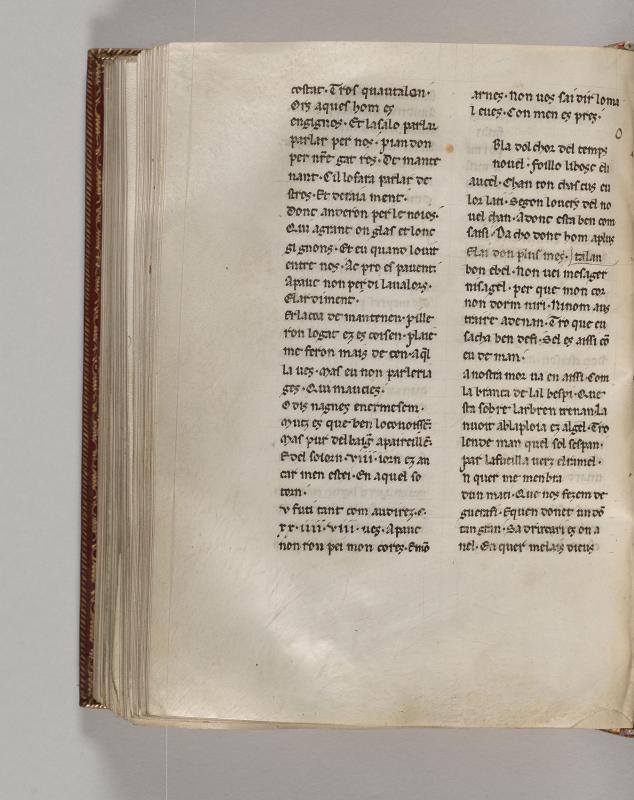 costat· Tros quautalen·
Ors aques hom es
engignos· Et lasalo parlar
parlar per nos· pian don
per nr̄e gat ros· De mante
nant· Cil lofara parlar de
stros· Et deraia ment·
Donc anderon per le noios·
Qui agrant on glas et lonc
gignons· Et eu quand louit
entre nos· Ac pro es pauenti
Apauc non perdi laualors·
Elardiment·
Erlacoa de mantenen· pille
ron logat ez es coisen· plaie
me feron mais de con· Aq̄l
la ues· Mas eu non parleria
ges· Qui maucies·
O dis nagnes enermesem·
Mutz es que ben loconoisse·
Mas pur del baig apareille·
Edel soiorn· viii· iorn ez an
car men estei· En aquel so
torn·
v futi tant com audirez· c·
xx· iiii· viii· ues· Apauc
non ron pei mon cores· Emō
arnes· Non uos sai dir loma
l eues· Con men es pres·
O
Bla dol chor del temps
nouel· foillo libosc eli
aucel· Chan ton chascus en
lor lati· Segon louers del no
uel chan· Adonc esta ben com
saisi· Da cho dont hom aplus
Elai don plus mes· talan
bon ebel· Non uei mesager
nisagel· per que mon cor
non dorm niri· Ninom aus
traire adenan· Tro que eu
sacha ben defi· Sel es aissi cō
eu deman·
A nostra mor ua en aissi· Com
la branca de lal bespi· Que
sta sobre larbren trenanla
nuoit ablaploia ez algel· Tro
lende man quel sol sespan·
par lafueilla uerz elramel·
n quer me menbra
dun mati· Que nos fezem de
guerafi· Equen donet un dō
tan gran· Sa drucari es on a
nel· En quer melais dieus